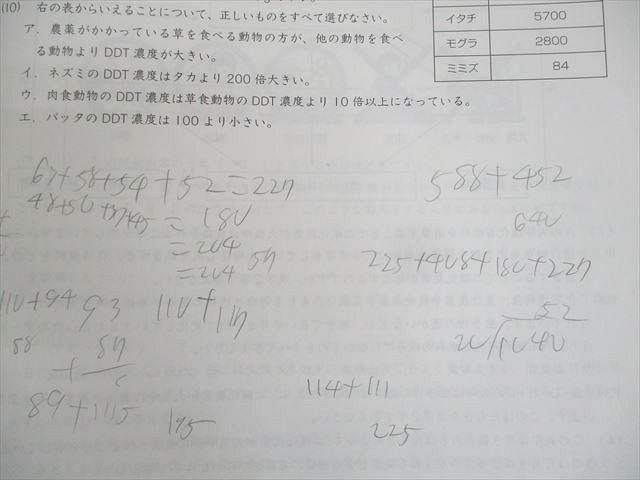 (10) 右の表からいえることについて、正しいものをすべて選びなさい。
ア．農薬がかかっている草を食べる動物の方が、他の動物を食べ
る動物より DDT 濃度が大きい。
イ．ネズミの DDT 濃度はタカより 200 倍大きい。
ウ．肉食動物の DDT 濃度は草食動物の DDT 濃度より 10 倍以上になっている。
エ．バッタの DDT 濃度は 100 より小さい。
イタチ 5700
モグラ 2800
ミミズ 84
67+58+54+52=227
= 180
=204
=204 57
588+452
640
225+408+180+227
110+94 93
88
89+115
175
114+111
225
52